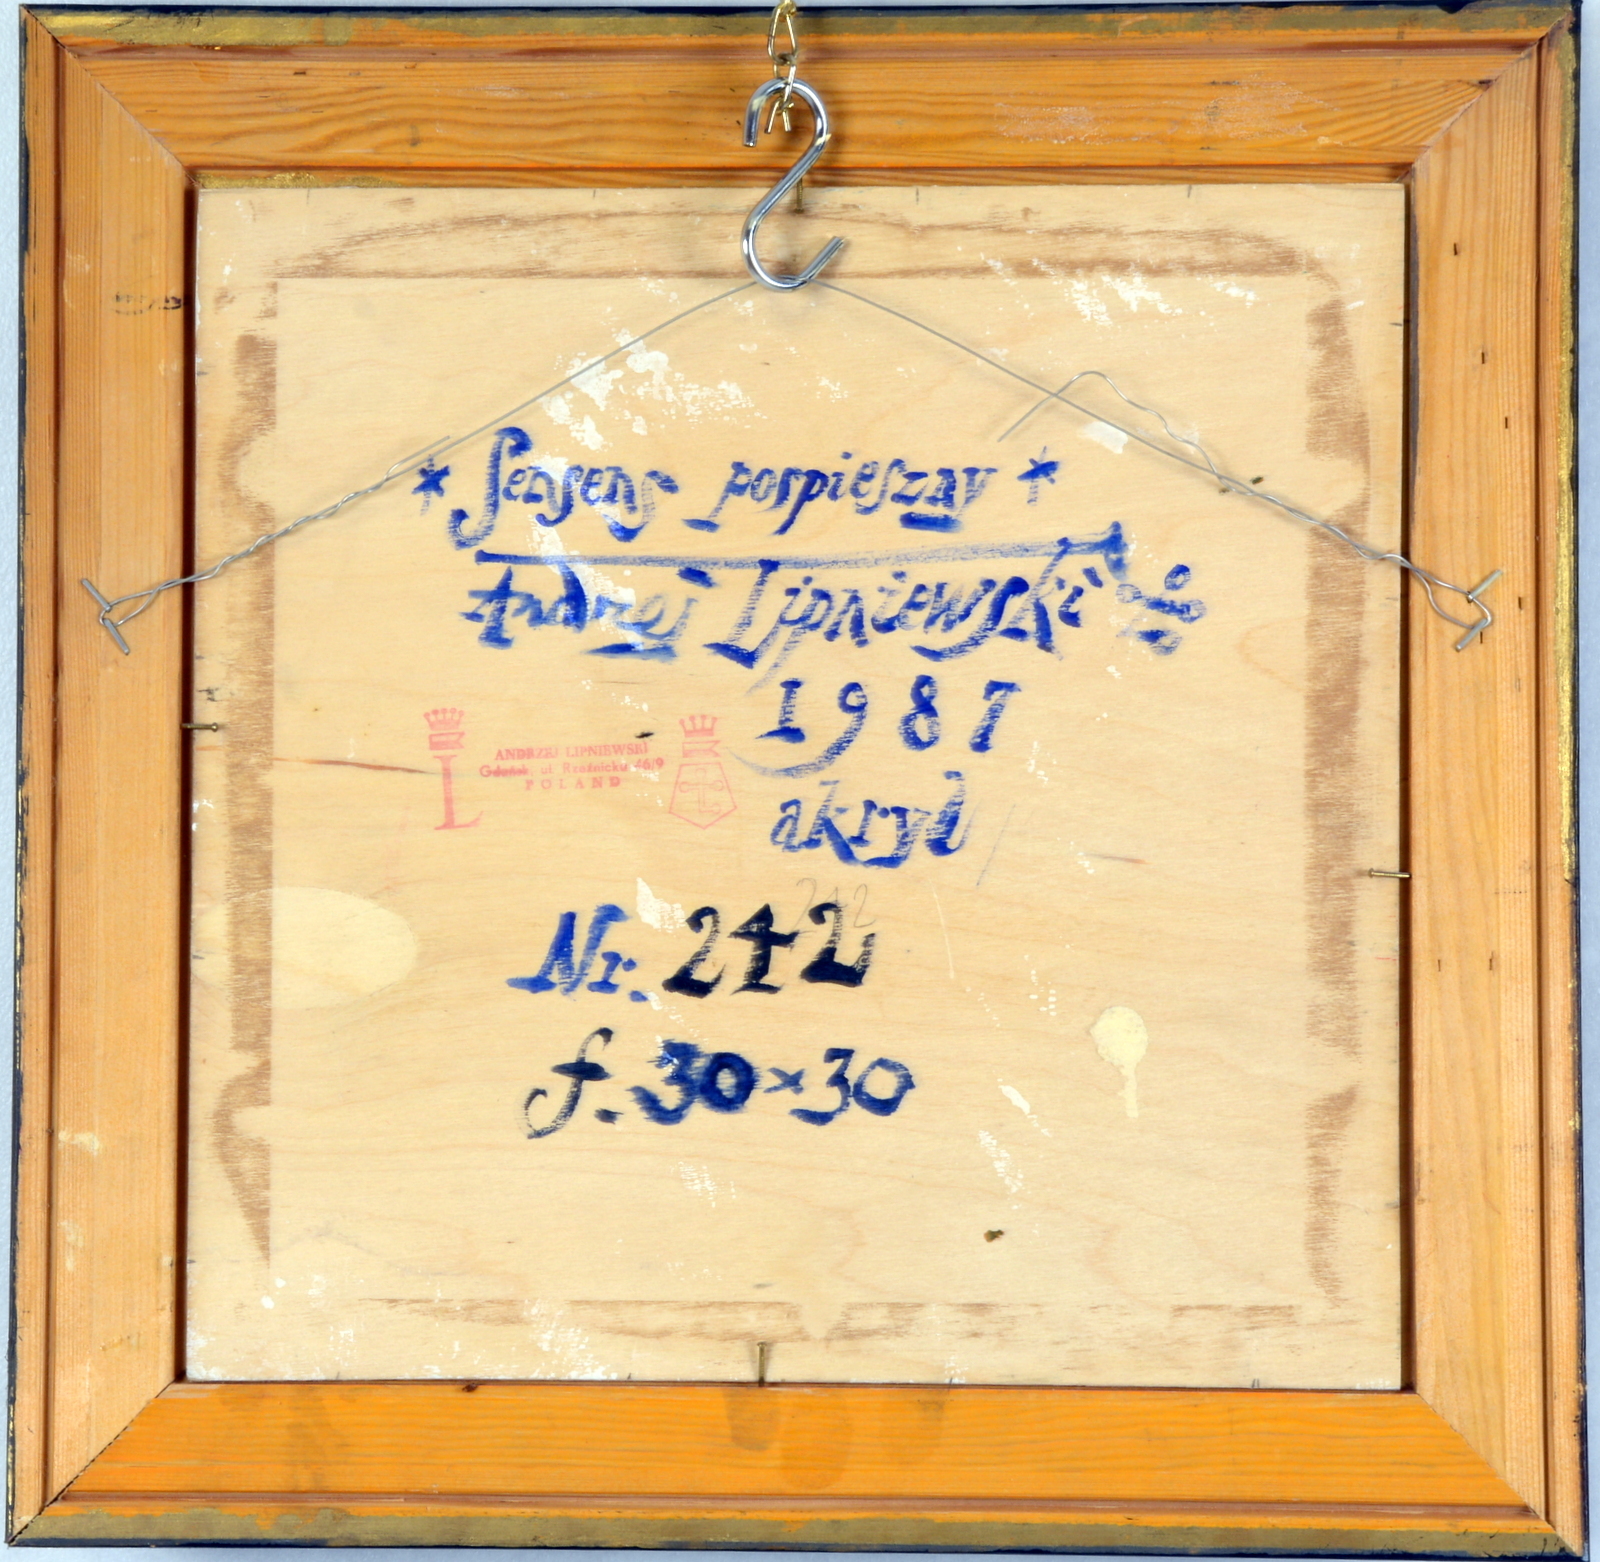 * Sensens pospieszny *
Andrzej Lipniewski
1987
akryl
L
ANDRZEJ LIPNIEWSKI
Gdańsk, ul. Rzeźnicka 46/9
POLAND
242
Nr. 242
f. 30×30